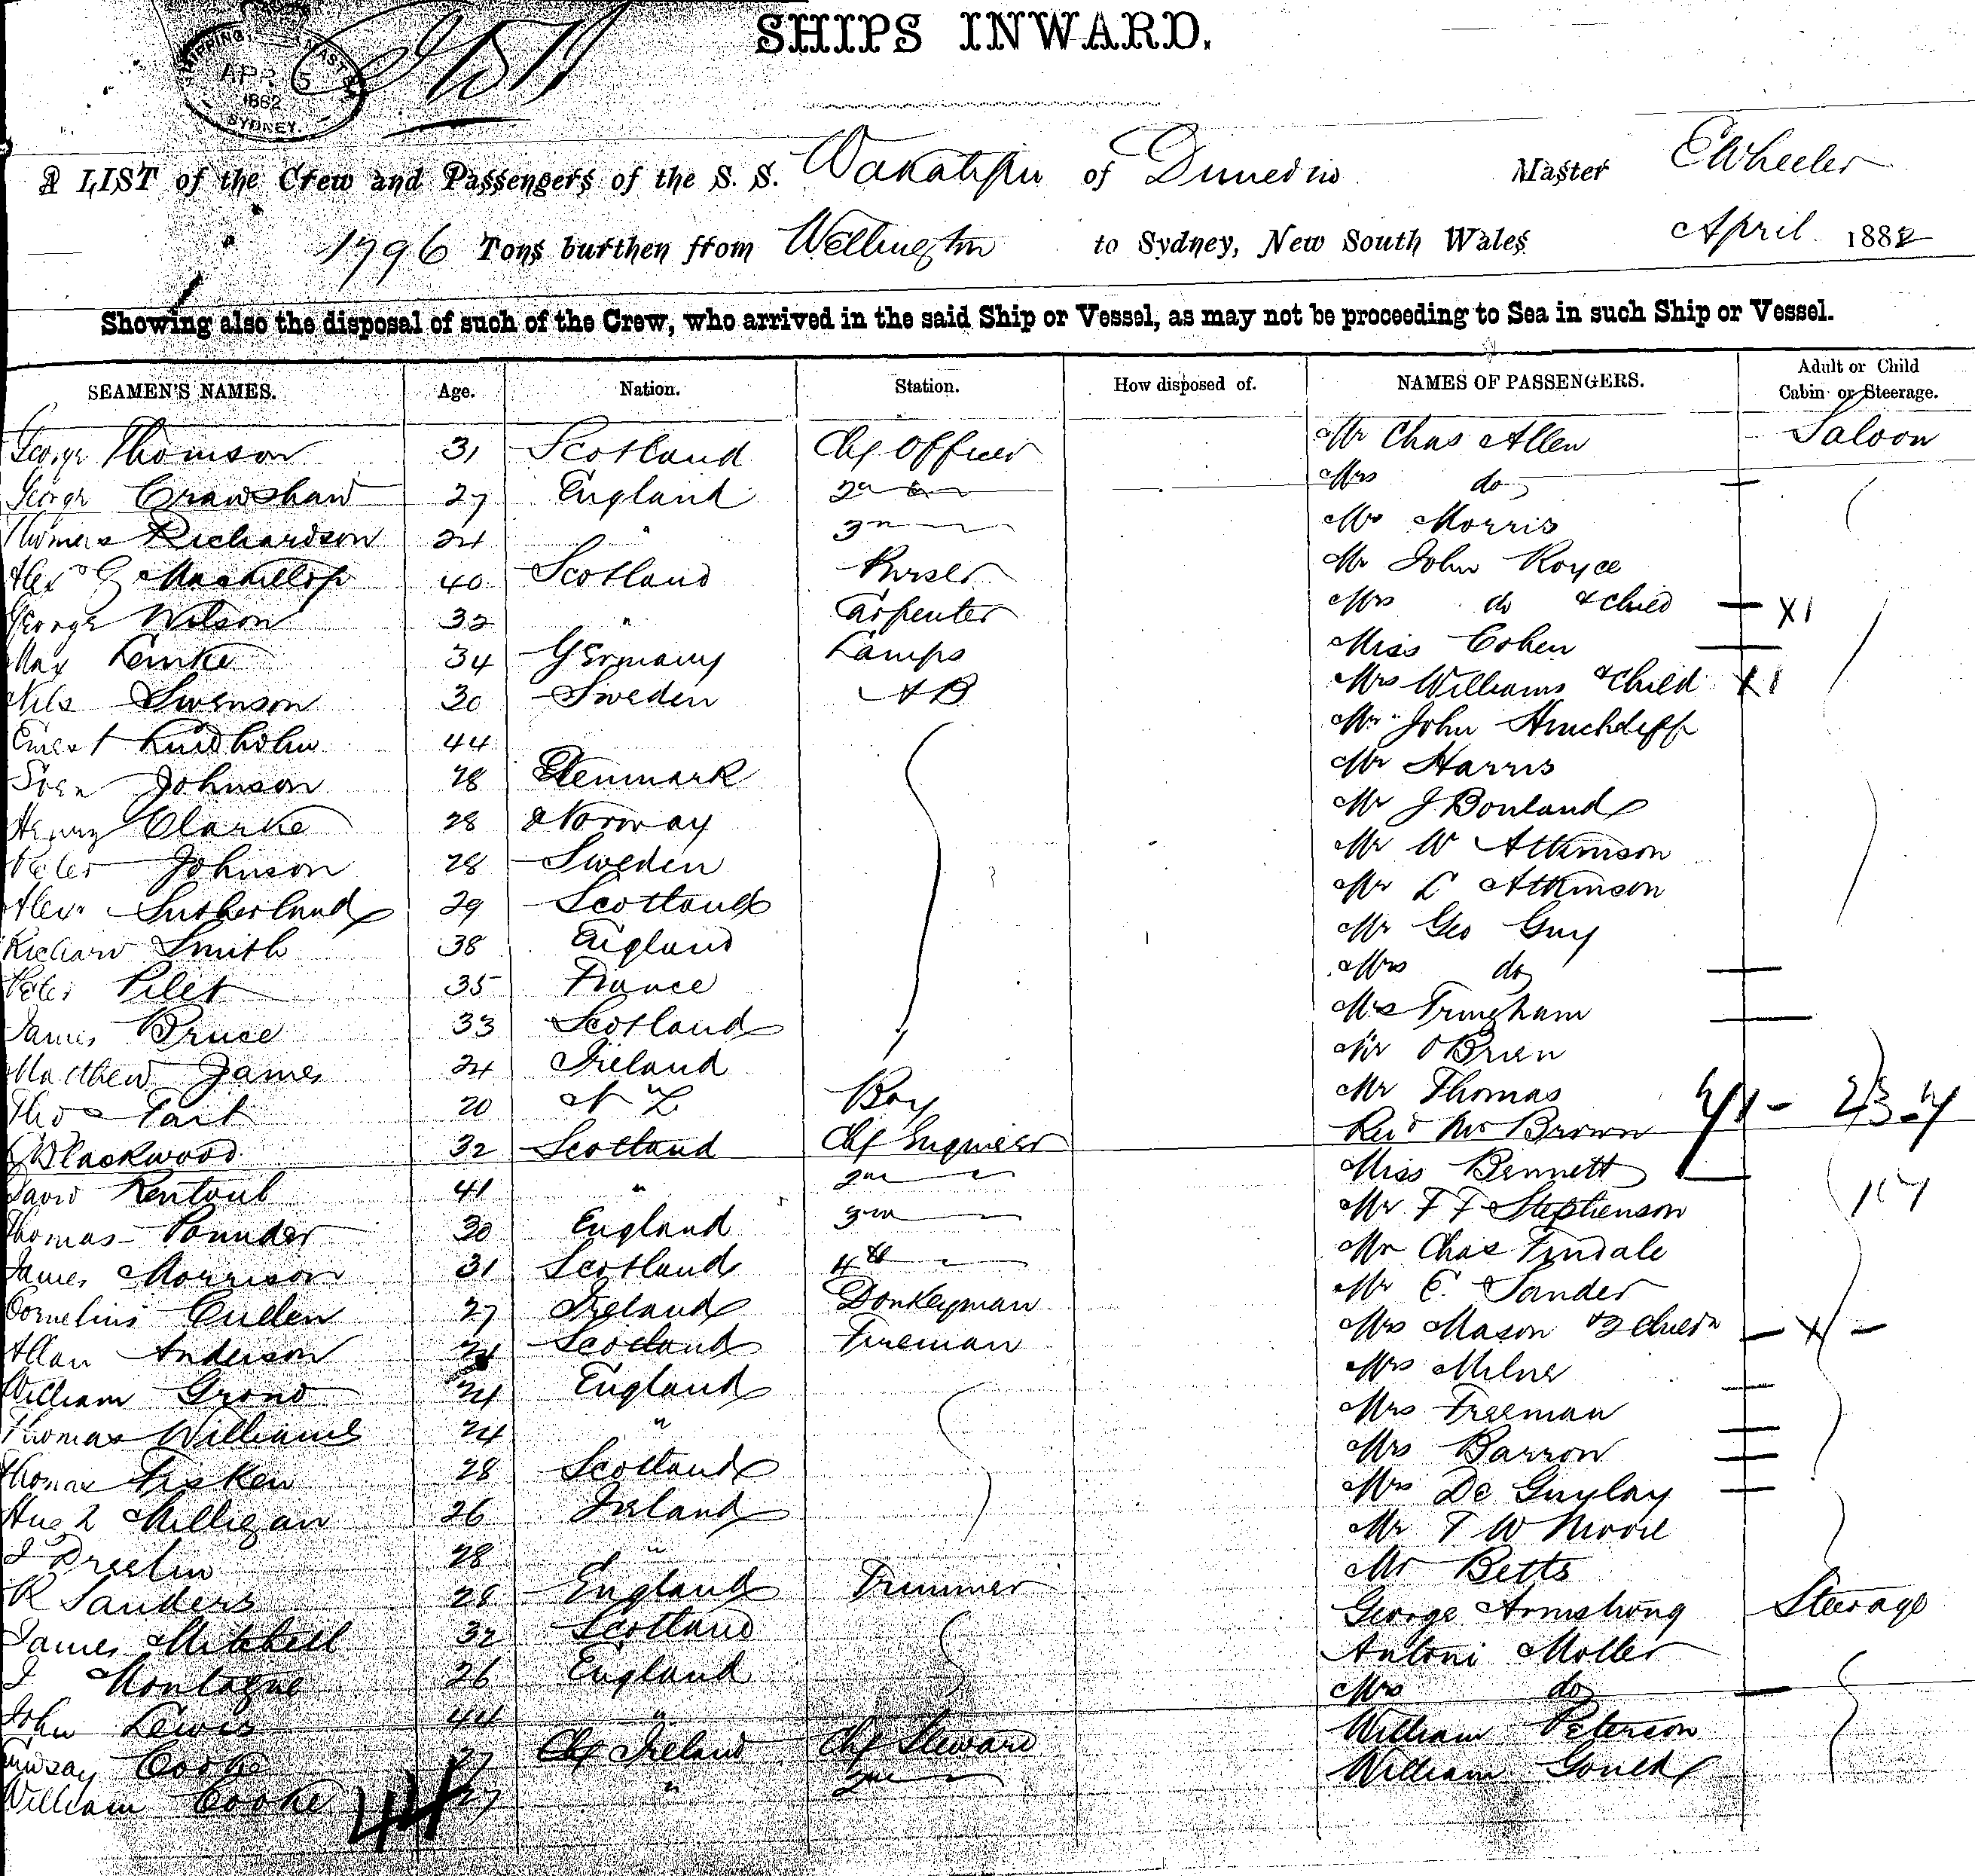 SHIPS INWARD.
SHIPPING MASTER
APR 5
1882
SYDNEY.
A LIST of the Crew and Passengers of the S. S. Wakatipu of Dunedin Master E Wheeler
1796 Tons burthen from Wellington to Sydney, New South Wales April 1882
Showing also the disposal of such of the Crew, who arrived in the said Ship or Vessel, as may not be proceeding to Sea in such Ship or Vessel.
SEAMEN'S NAMES. Age. Nation. Station. How disposed of. NAMES OF PASSENGERS. Adult or Child Cabin or Steerage.
George Thomson 31 Scotland Chf Officer Mr Chas Allen Saloon
George Crawshaw 27 England 2n do Mrs do
Thomas Richardson 24 " 3rd Mr Morris
Alex Mackillop 40 Scotland Purser Mr John Royce
George Wilson 32 " Carpenter Mrs do & child X1
Max Lemke 34 Germany Lamps Miss Cohen
Nils Swenson 30 Sweden AB Mrs Williams & Child X1
Ernest Lindholm 44 Mr John
Sven Johnson 28 Denmark Mr Harris
Henry Clarke 28 Norway Mr J Bonland
Peter Johnson 28 Sweden Mr W Atkinson
Alexr Sutherland 29 Scotland Mr L Atkinson
Richard Smith 38 England Mr Geo Guy
Peter Pilet 35 France Mrs do
James Bruce 33 Scotland Mrs Tringham
Matthew James 24 Ireland Mr O'Brien
Thos Tait 20 N Z Boy Mr Thomas
Blackwood 32 Scotland Chf Engineer Revd Mr Brown
David Rentoul 41 " 2nd Miss Bennett
Thomas Pounder 30 England 3rd Mr F F Stephenson
James Morrison 31 Scotland 4th Mr Chas Tindale
Cornelius Cullen 27 Ireland Donkeyman Mr C. Sander
Allan Anderson Scotland Fireman Mrs Mason & 2 childn X
William Grono 24 England Mrs Milne
Thomas Williams 24 " Mrs Freeman
Thomas Fisken 28 Scotland Mrs Barron
Hugh Milligan 26 Ireland Mrs De
J Breslin 28 " Mr T W Moore
R Sanders 28 England Trimmer Mr Betts
James Mitchell 32 Scotland George Armstrong Steerage
J Montague 26 England Antoni Moller
John Lewis 44 " Mrs do
Lindsay Cooke 27 Ireland Chf Steward William Peterson
William Cooke 27 " 2nd William Gould
44